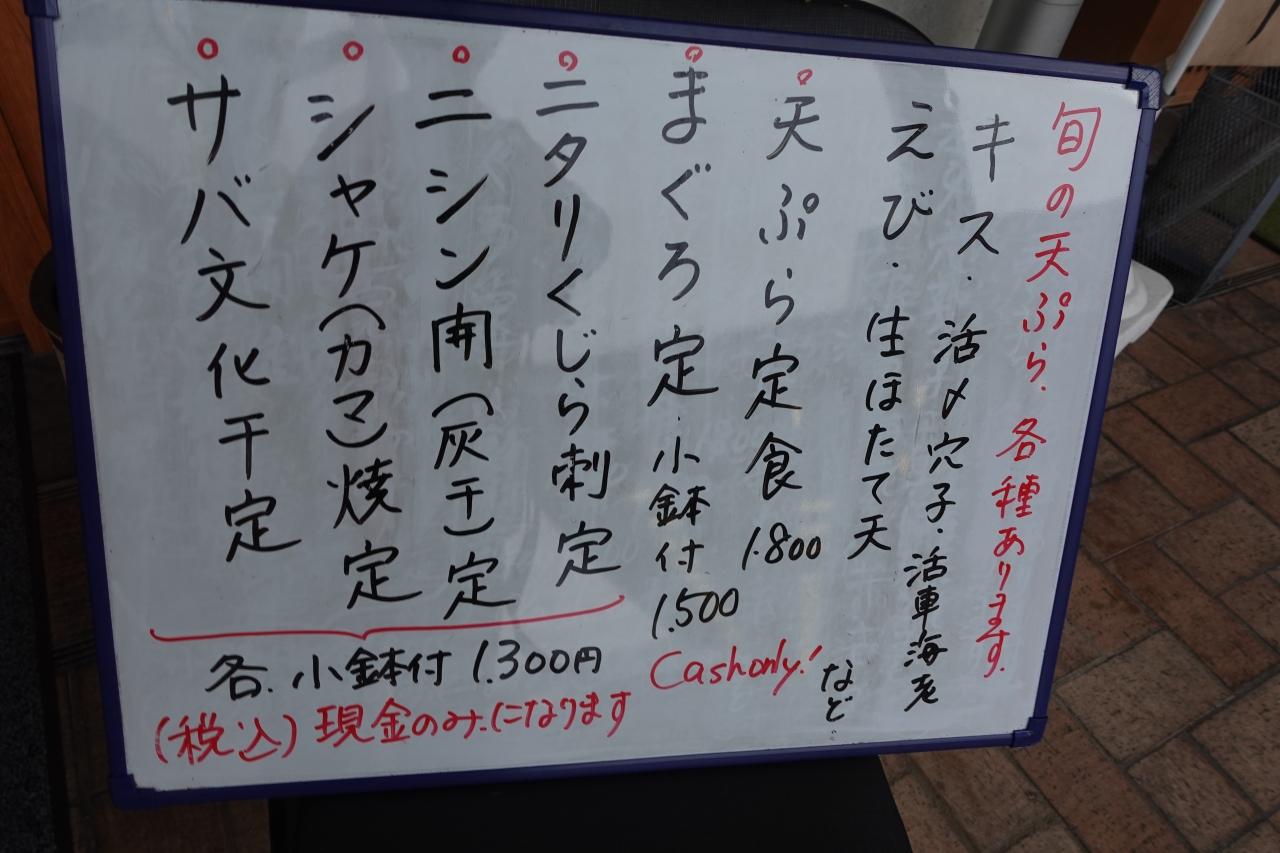 旬の天ぷら、各種あります。
キス・活〆穴子・活車海老
えび・生ほたて天
など
天ぷら定食 1.800
まぐろ定・小鉢付 1.500
ニタリくじら刺定
ニシン開(灰干)定
シャケ(カマ)焼定
サバ文化干定
各.小鉢付 1.300円
Cash only!
(税込)現金のみになります